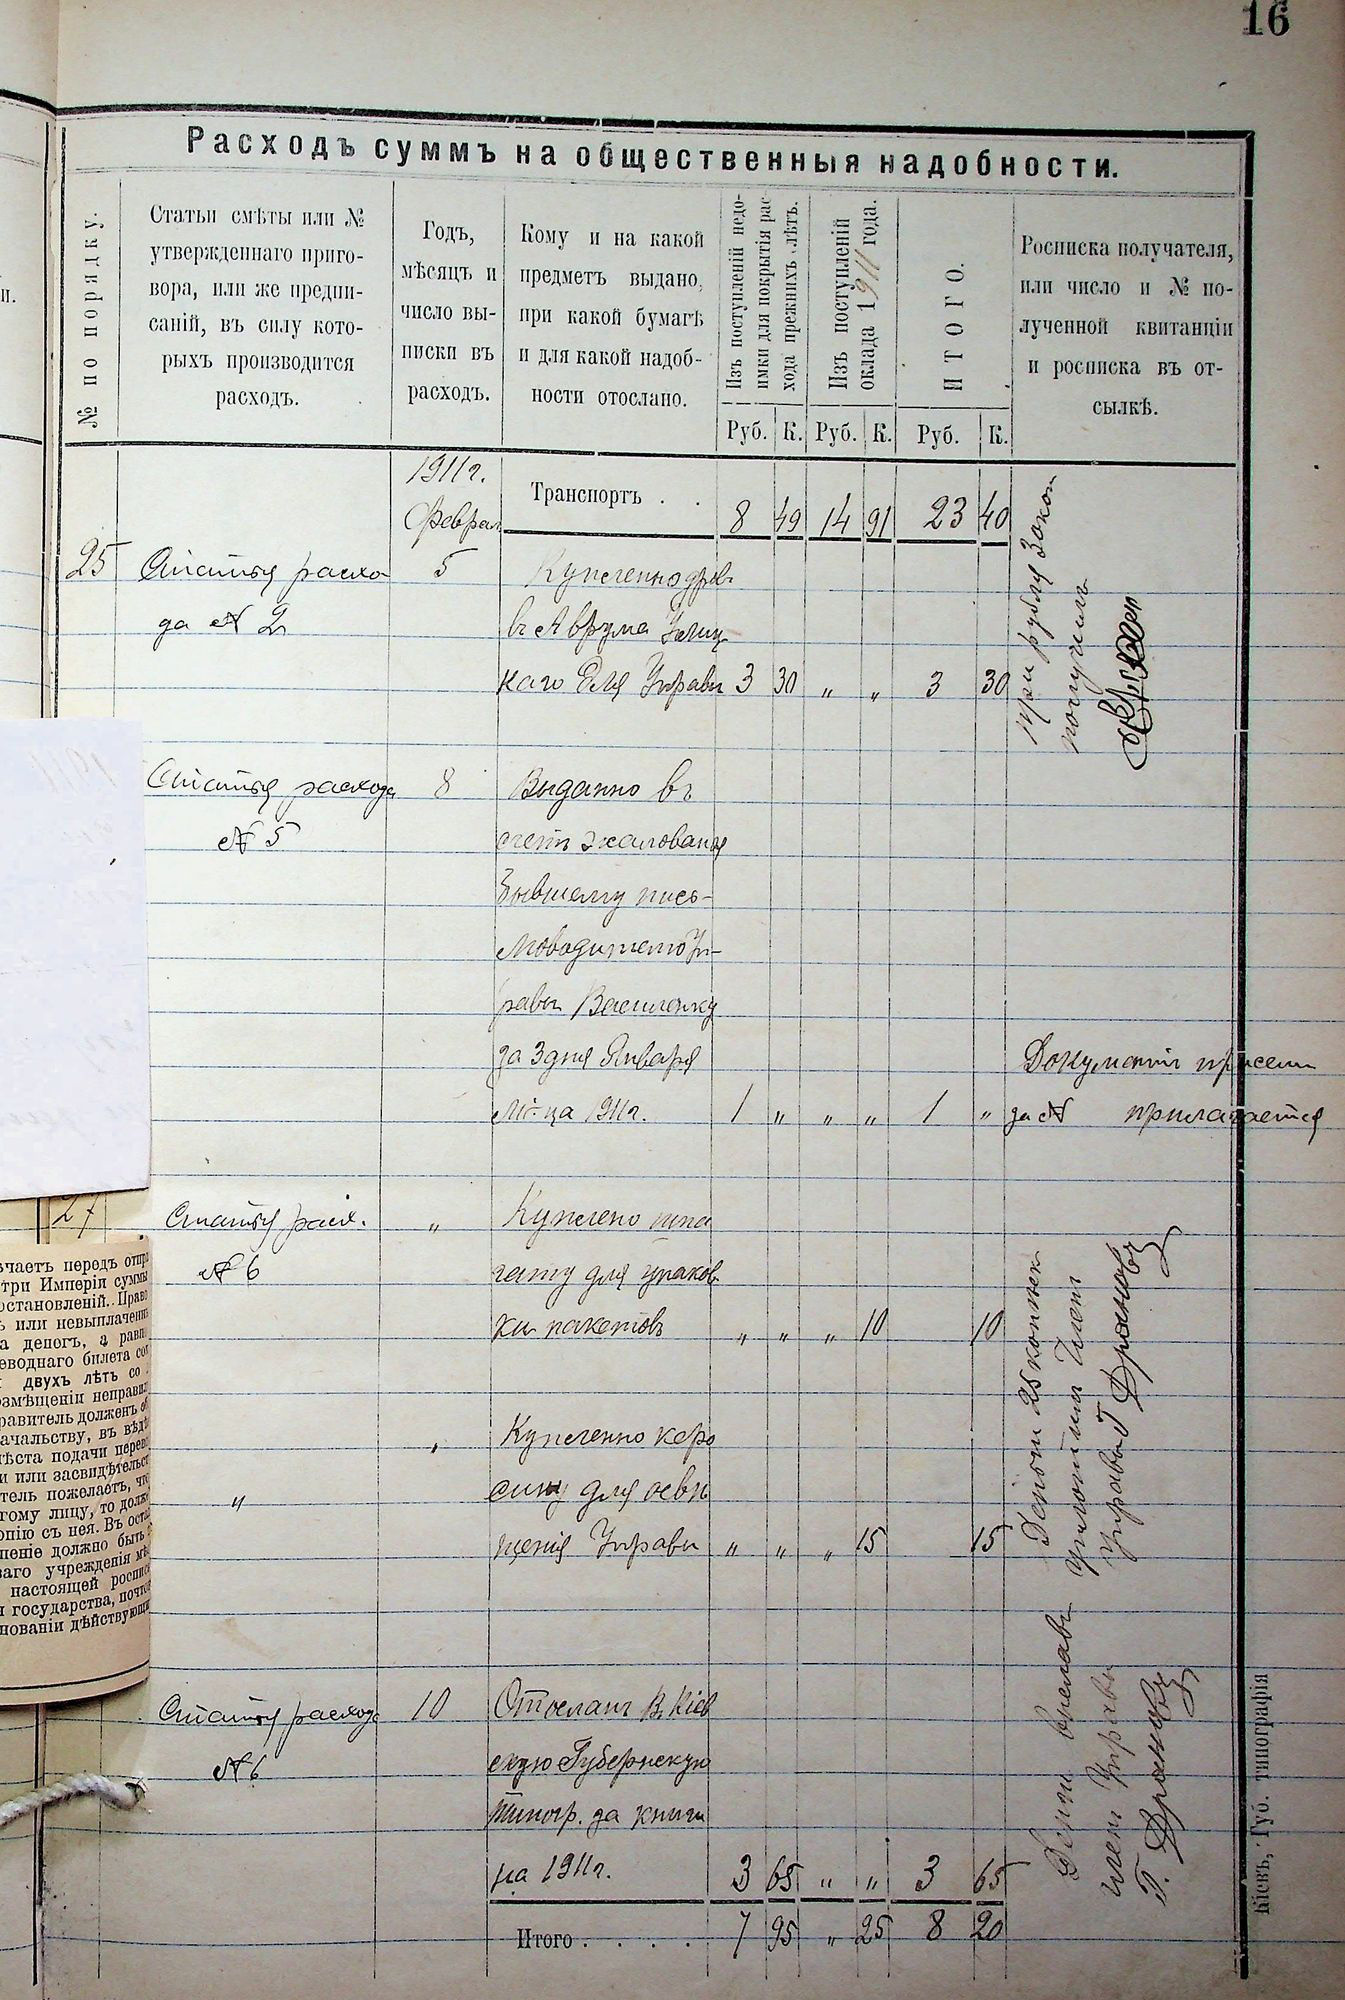 16
Расходъ суммъ на общественныя надобности.
№ по порядку.
Статьи смѣты или №
утвержденнаго приго-
вора, или же предпи-
саній, въ силу кото-
рыхъ производится
расходъ.
Годъ,
мѣсяцъ и
число вы-
писки въ
расходъ.
Кому и на какой
предметъ выдано,
при какой бумагѣ
и для какой надоб-
ности отослано.
Изъ поступленій недо-
имки для покрытія рас
хода прежнихъ лѣтъ.
Изъ поступленій
оклада 1911 года.
ИТОГО.
Росписка получателя,
или число и № по-
лученной квитанціи
и росписка въ от-
сылкѣ.
Руб. К. Руб. К. Руб. К.
1911 г.
Феврал
Транспортъ . . 8 49 14 91 23 40
25 Статья расхо 5 Купленно дров
да № 2 в Аврума
каго для Управы 3 30 „ „ 3 30
три рубля 30 коп
получилъ
Статья расхода 8 Выданно въ
№ 5 счетъ жалованья
бывшему пись-
моводителю Уп-
равы Василенку
за 3 дня Января
м-ца 1911 г. 1 „ „ „ 1 „
Документъ
за № прилагается
27 Статья расх. „ Куплено шпа
№ 6 гату для упаков
ки пакетовъ „ „ „ 10 10
„ Купленно керо
„ сину для освѣ
щенія Управы „ „ „ 15 15
Деньги 25 копѣек
уплотил Член
Управы Г
Статья расхода 10 Отослано В Кіев
№ 6 скую Губернскую
типогр. за книги
на 1911 г. 3 65 „ „ 3 65
Деньги выславъ
член Управы
Г.
Итого . . . . 7 95 „ 25 8 20
Кіевъ, Губ. типографія
чаетъ передъ отпра
три Имперіи суммы
остановленій. Право
ь или невыплаченн
а денегъ, а равн
еводнаго билета со
двухъ лѣтъ со
змѣщеніи неправил
равитель долженъ о
ачальству, въ вѣдѣ
ѣста подачи перев
и или засвидѣтельст
тель пожелаетъ, что
гому лицу, то долж
опію съ нея. Въ оста
леніе должно быть
ваго учрежденія мѣ
настоящей роспис
и государства, почтов
нованіи дѣйствующи